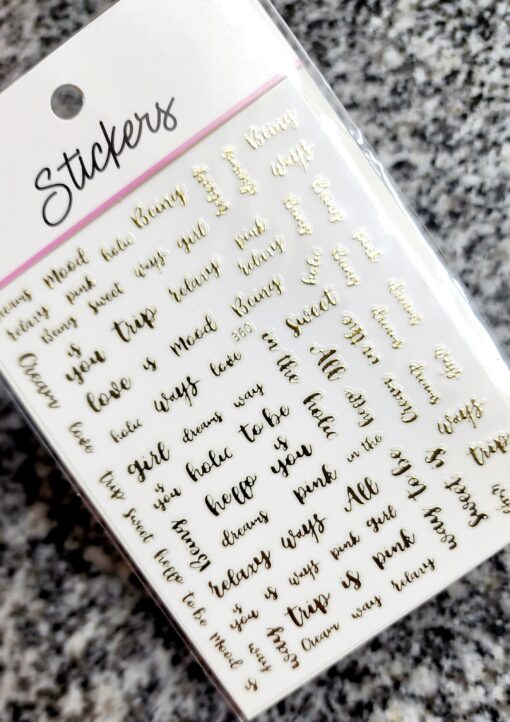 Stickers
Being
Ways
Being
dreams Mood holic
relaxy pink ways girl
Being sweet relaxy pink
is you trip relaxy
Cream love is Mood Being
love holic ways love 360 Sweet
girl dreams way in the All
trip is you holic to be holic
sweet Being hello is you
hello dreams pink in the
to be relaxy ways All
Mood is you is ways pink girl
is way ready trip is pink
Cream way relaxy
holic Being pink
in the dreams dreams
Cream dreams
ways
trip
ready to be is Sweet